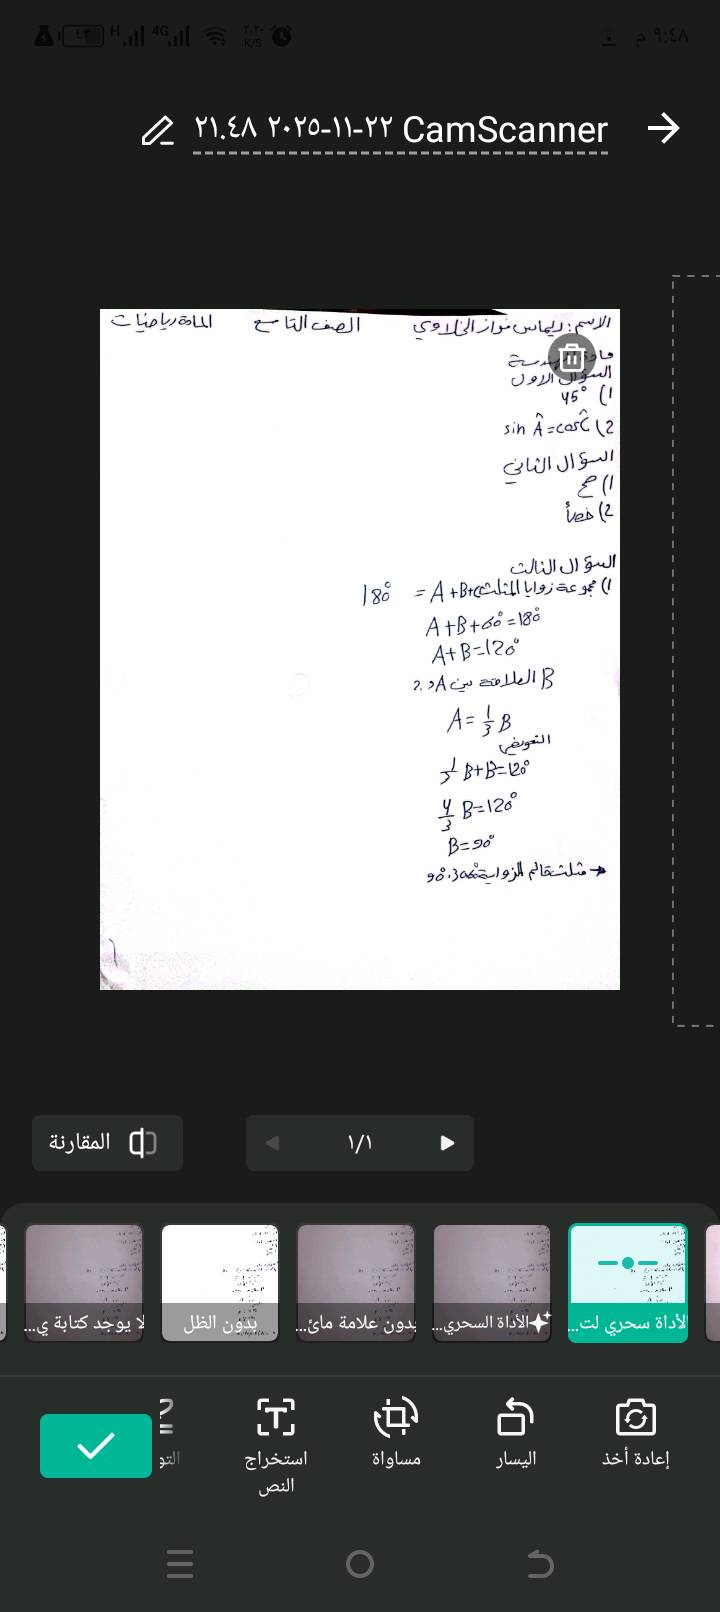 ٩:٤٨ م
٤٣ H 4G ٢.٢٠ K/S
CamScanner ٢٢-١١-٢٠٢٥ ٢١.٤٨
الاسم: ريماس فواز الصف التاسع المادة رياضيات
السؤال الاول
1) 45°
2) sin Â = cos Ĉ
السؤال الثاني
1) صح
2) خطأ
السؤال الثالث
1) مجموعة زوايا المثلث A+B+C = 180°
A+B+60°=180°
A+B=120°
العلاقة بين A و B
A = 1/3 B
التعويض
1/3 B+B=120°
4/3 B=120°
B=90°
← مثلث قائم الزواية
المقارنة
١/١
لا يوجد كتابة ي...
بدون الظل
بدون علامة مائ...
الأداة السحري...
الأداة سحري لت...
التو
استخراج النص
مساواة
اليسار
إعادة أخذ